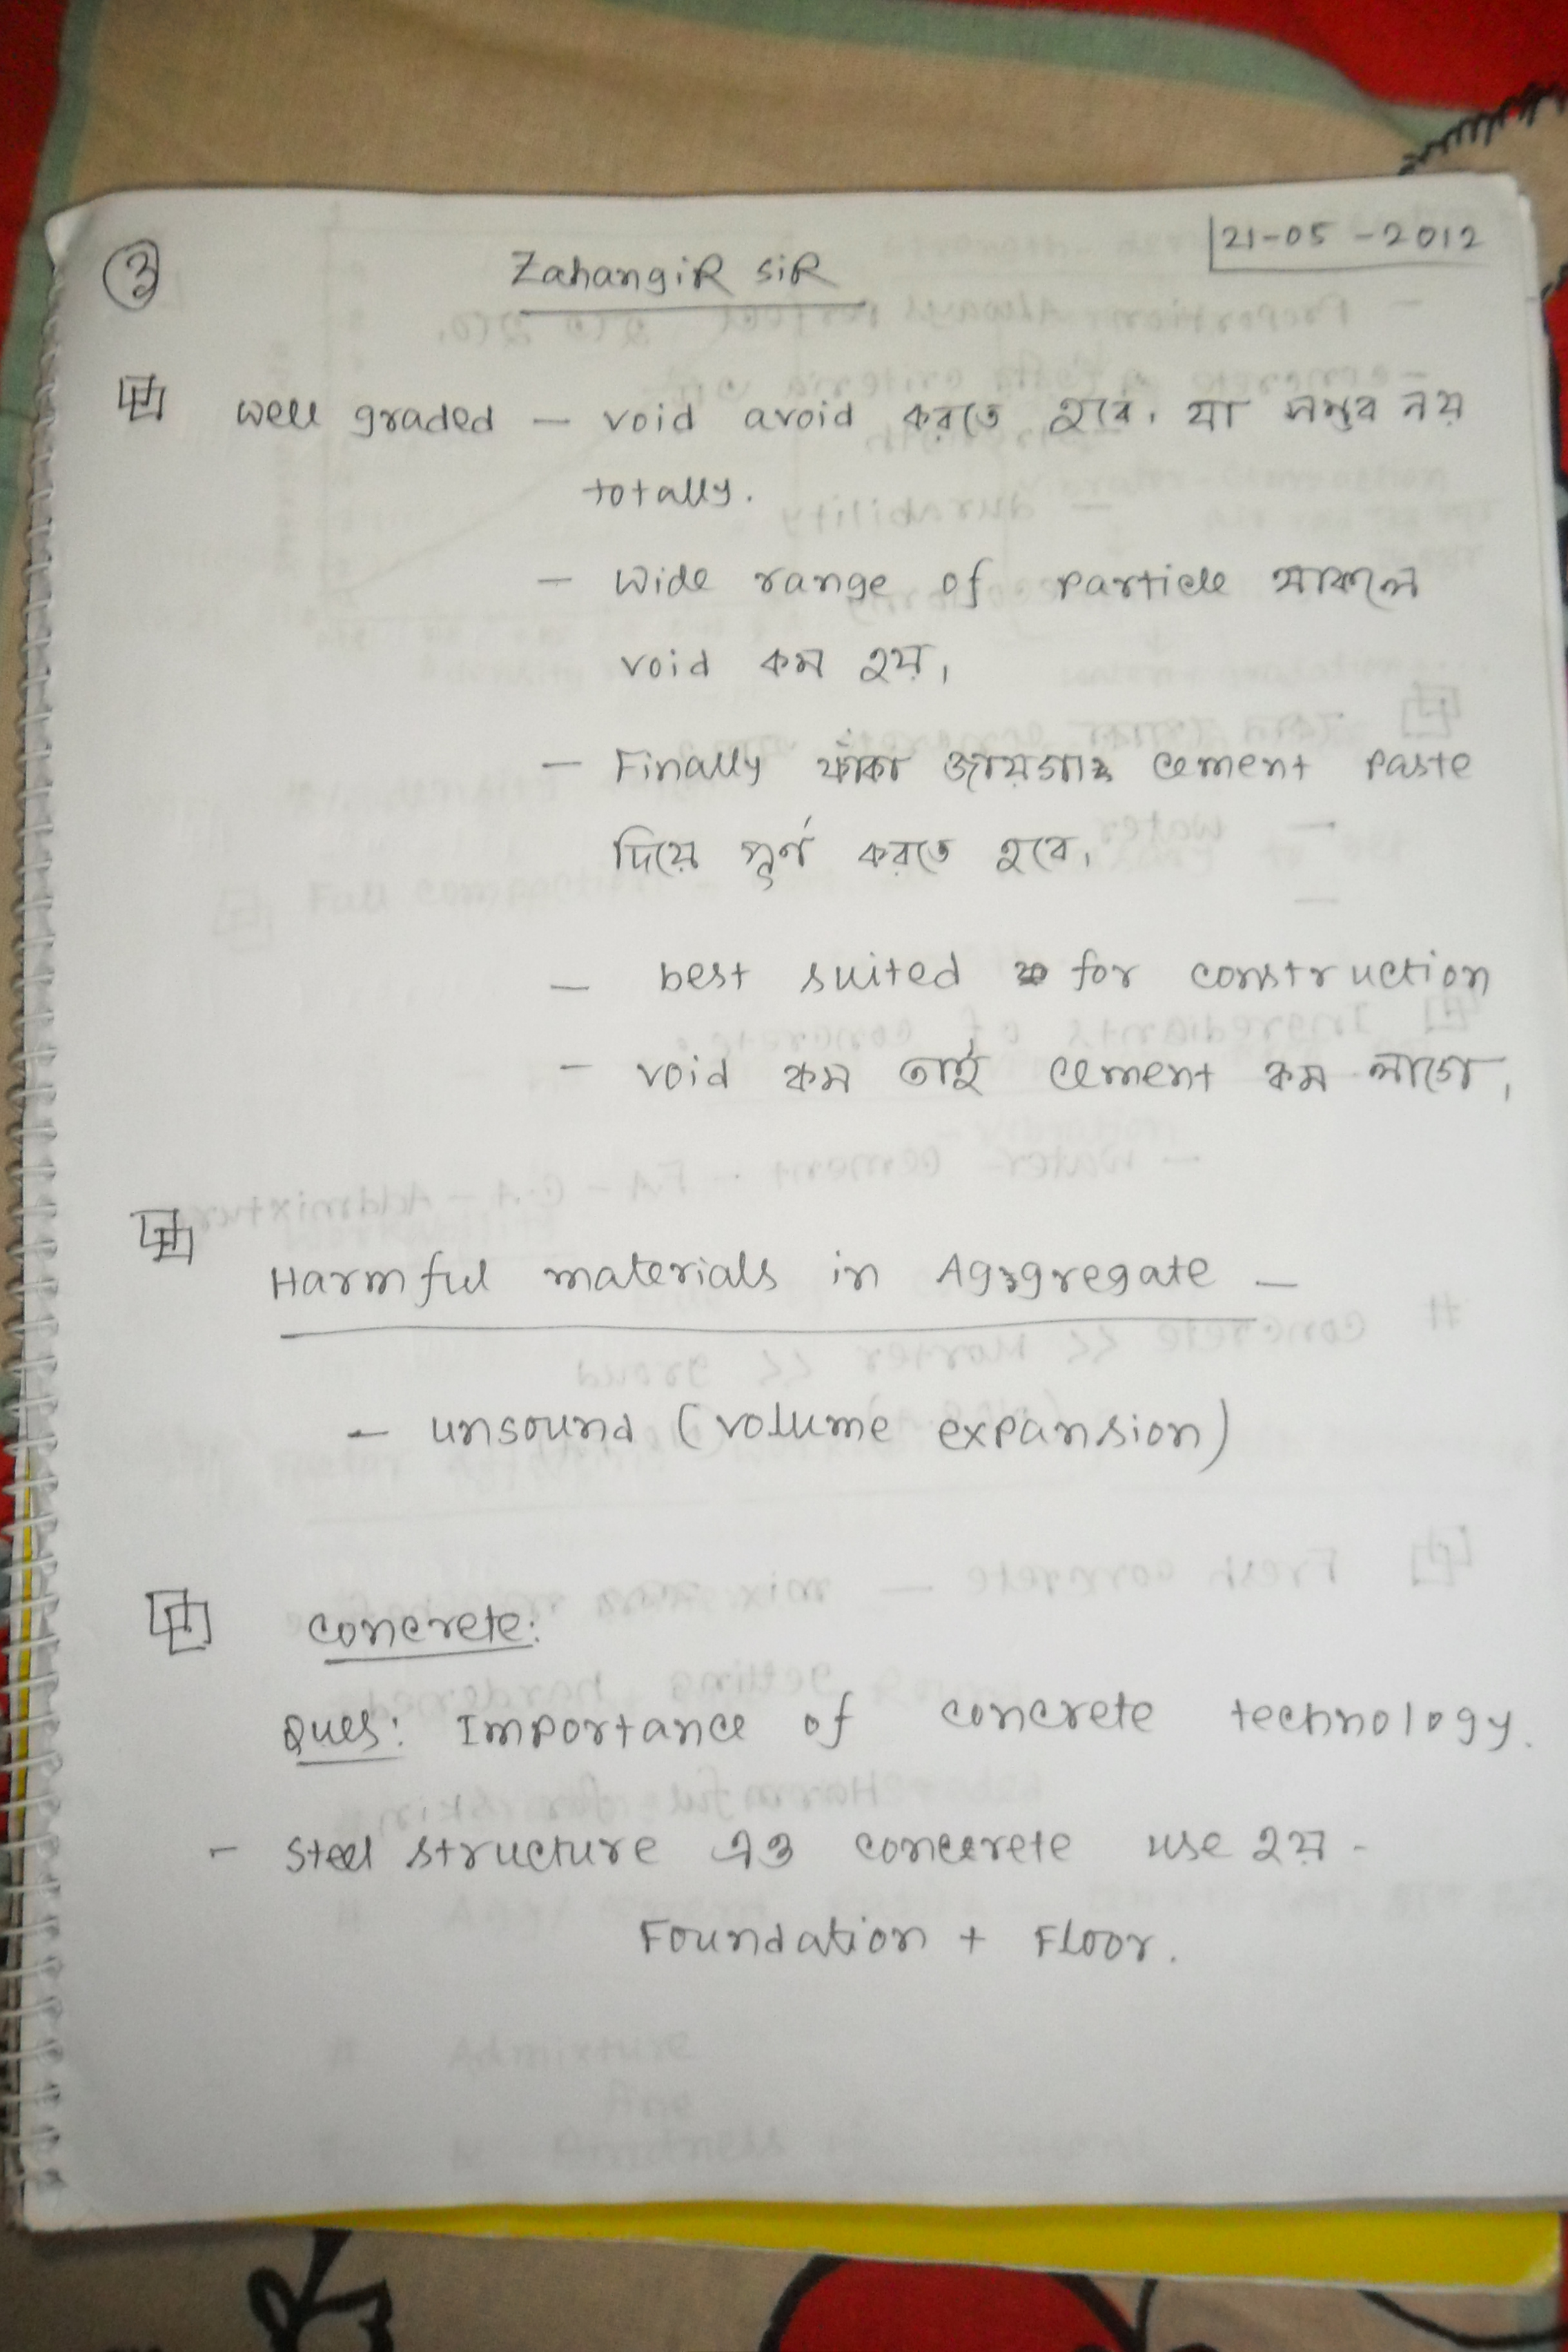 3
Zahangir sir
21-05-2012
Well graded — void avoid করতে হবে। যা সম্ভব নয়
totally.
— Wide range of particle থাকলে
void কম হয়।
— Finally ফাঁকা জায়গায় cement paste
দিয়ে পূর্ণ করতে হবে।
— best suited for construction
— void কম তাই cement কম লাগে।
Harmful materials in Aggregate —
— unsound (volume expansion)
Concrete:
Ques: Importance of concrete technology.
— Steel structure এও concrete use হয় -
Foundation + Floor.